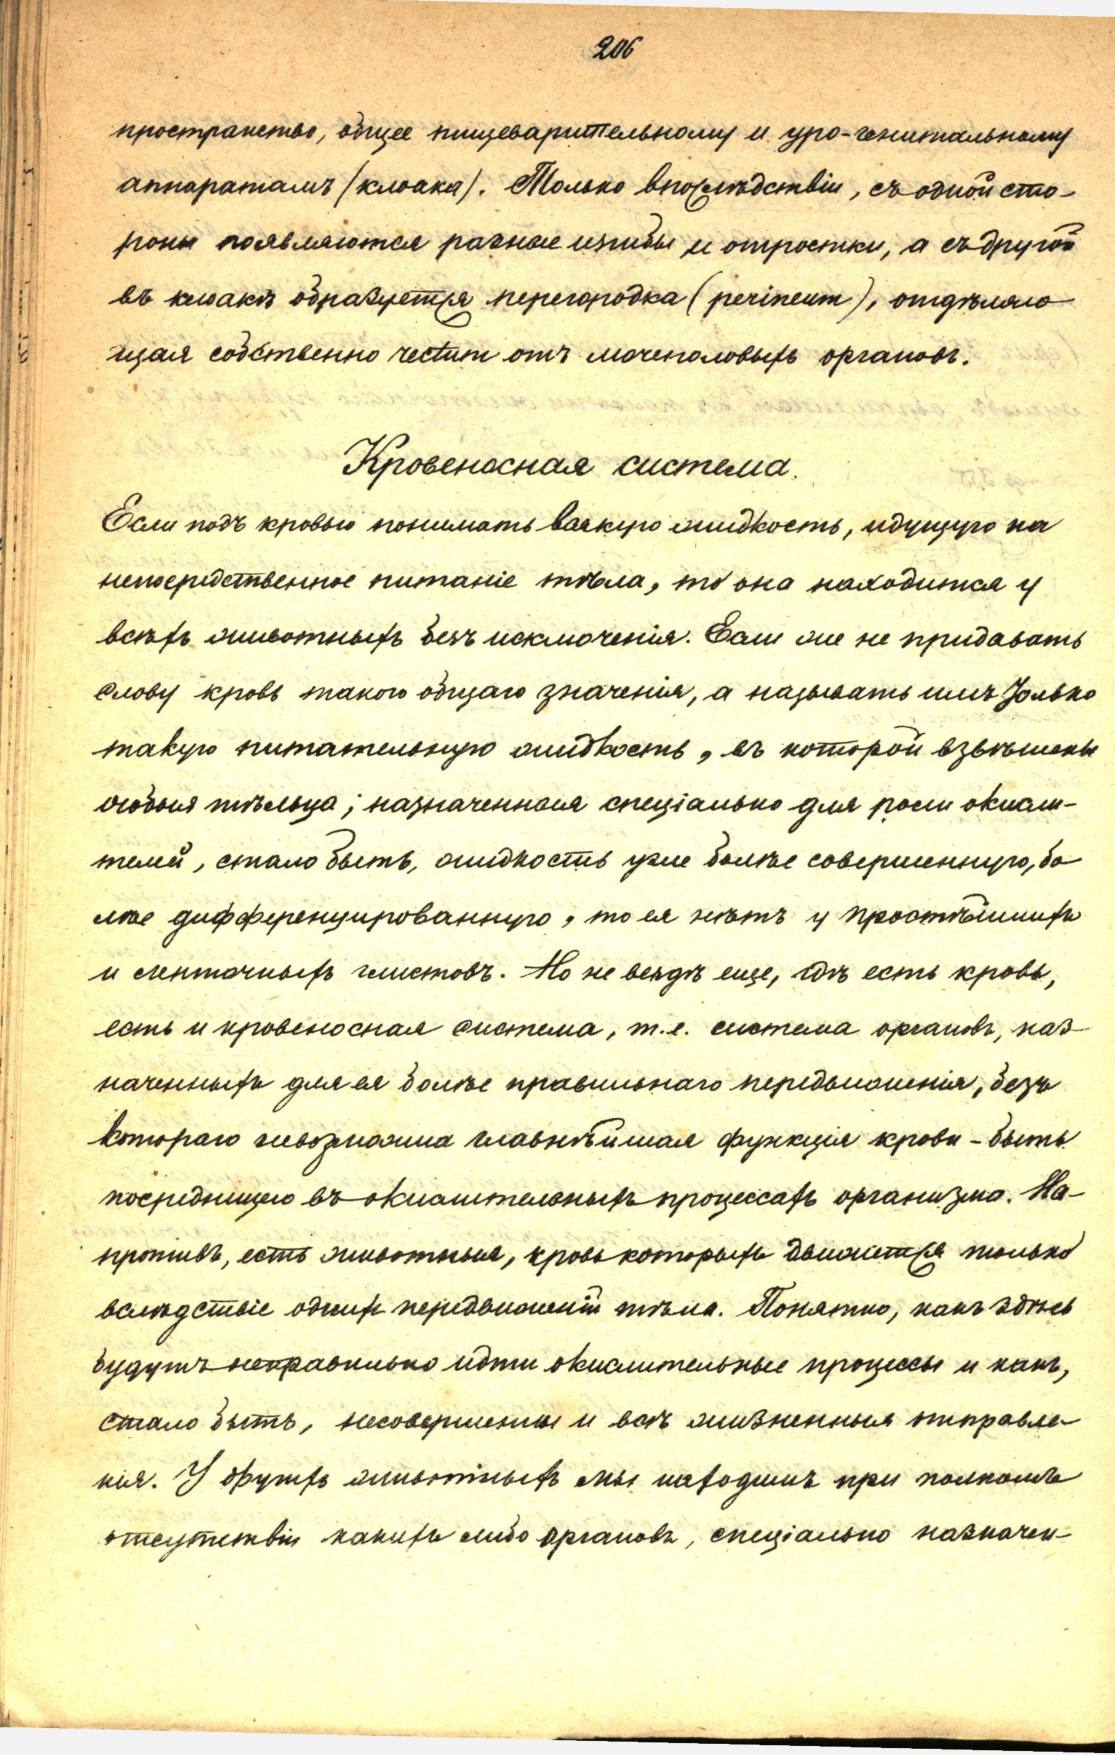 206
пространство, общее пищеварительному и уро-генитальному
аппаратамъ (клоака). Только впослѣдствіи, съ одной сто-
роны появляются разные изгибы и отростки, а съ другой
въ клоакѣ образуется перегородка (perineum), отдѣляю
щая собственно rectum отъ мочеполовыхъ органовъ.
Кровеносная система.
Если подъ кровью понимать всякую жидкость, идущую на
непосредственное питаніе тѣла, то она находится у
всѣхъ животныхъ безъ исключенія. Если же не придавать
слову кровь такого общаго значенія, а называть имъ только
такую питательную жидкость, въ которой взвѣшены
особыя тѣльца; назначенныя спеціально для роли окисли-
телей, стало быть, жидкость уже болѣе совершенную, бо
лѣе дифференцированную, то ея нѣтъ у простѣйшихъ
и ленточныхъ глистовъ. Но не вездѣ еще, гдѣ есть кровь,
есть и кровеносная система, т.е. система органовъ, наз-
наченныхъ для ея болѣе правильнаго передвиженія, безъ
котораго невозможна главнѣйшая функція крови - быть
посредницею въ окислительныхъ процессахъ организма. На-
противъ, есть животныя, кровь которыхъ движется только
вслѣдствіе однихъ передвиженій тѣла. Понятно, какъ здѣсь
будутъ неправильно идти окислительные процессы и какъ,
стало быть, несовершенны и всѣ жизненныя отправле-
нія. У другихъ животныхъ мы находимъ при полномъ
отсутствіи какихъ либо органовъ, спеціально назначен-